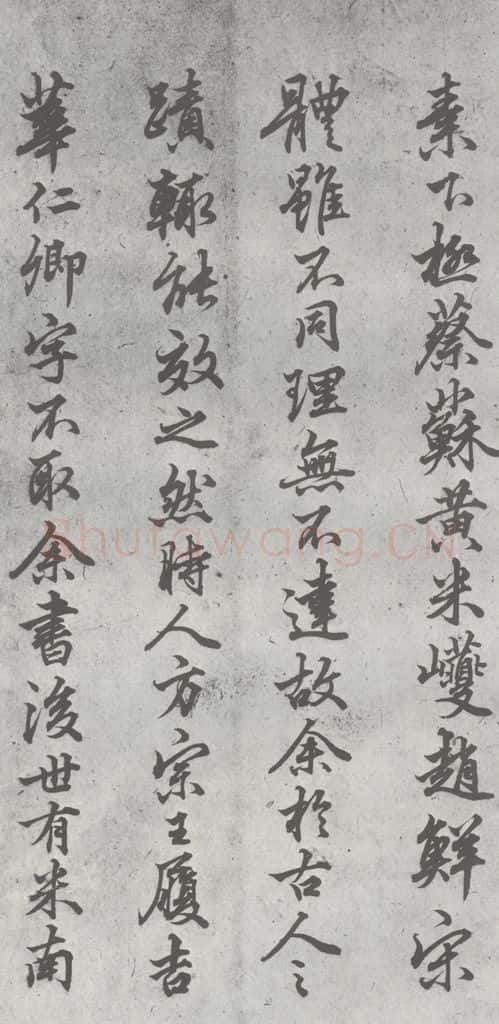 素下極蔡蘇黄米巙趙鮮宋
體雖不同理無不達故余於古人之
蹟輙能效之然時人方宗王履吉
華仁卿字不取余書後世有米南
Shufawang.CN